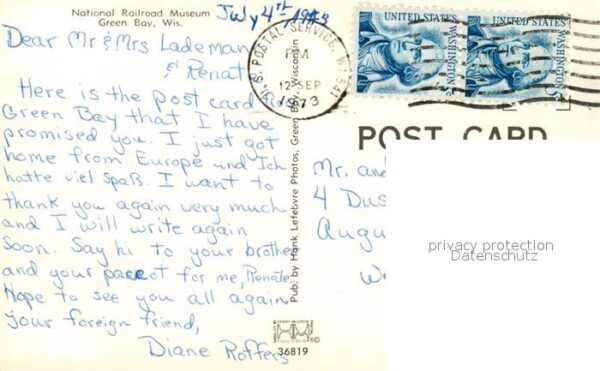 National Railroad Museum
Green Bay, Wis.
July 4th, 1973
Dear Mr & Mrs Lademan
& Renat
Here is the post card
Green Bay that I have
promised you. I just got
home from Europe und Ich
hatte viel Spaß. I want to
thank you again very much
and I will write again
soon. Say hi to your brother
and your for me, Renate.
Hope to see you all again
your foreign friend,
Diane Roffers
Pub. by Hank Lefebvre Photos, Green Bay, Wisconsin
36819
U.S. POSTAL SERVICE, WI 541
PM
12 SEP
1973
UNITED STATES
WASHINGTON
UNITED STATES
WASHINGTON
5c
POST CARD
Mr. and
4 Dus
Augu
We
privacy protection
Datenschutz